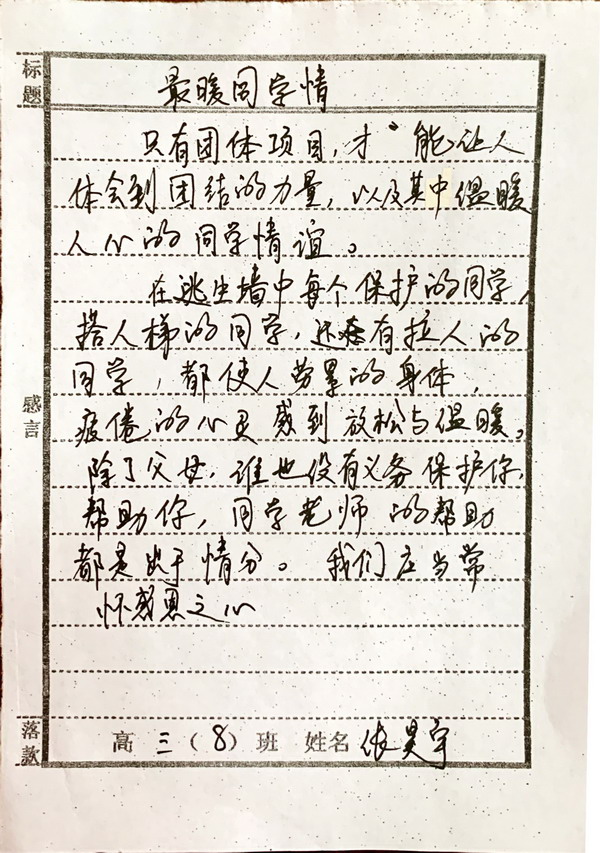 标题
最暖同学情
只有团体项目，才能让人
体会到团结的力量，以及其中温暖
人心的同学情谊。
在逃生墙中每个保护的同学，
搭人梯的同学，还有拉人的
同学，都使人劳累的身体，
疲倦的心灵感到放松与温暖。
除了父母，谁也没有义务保护你，
帮助你，同学老师的帮助
都是出于情分。我们应当常
怀感恩之心
感言
落款
高三（8）班 姓名 张昊宇